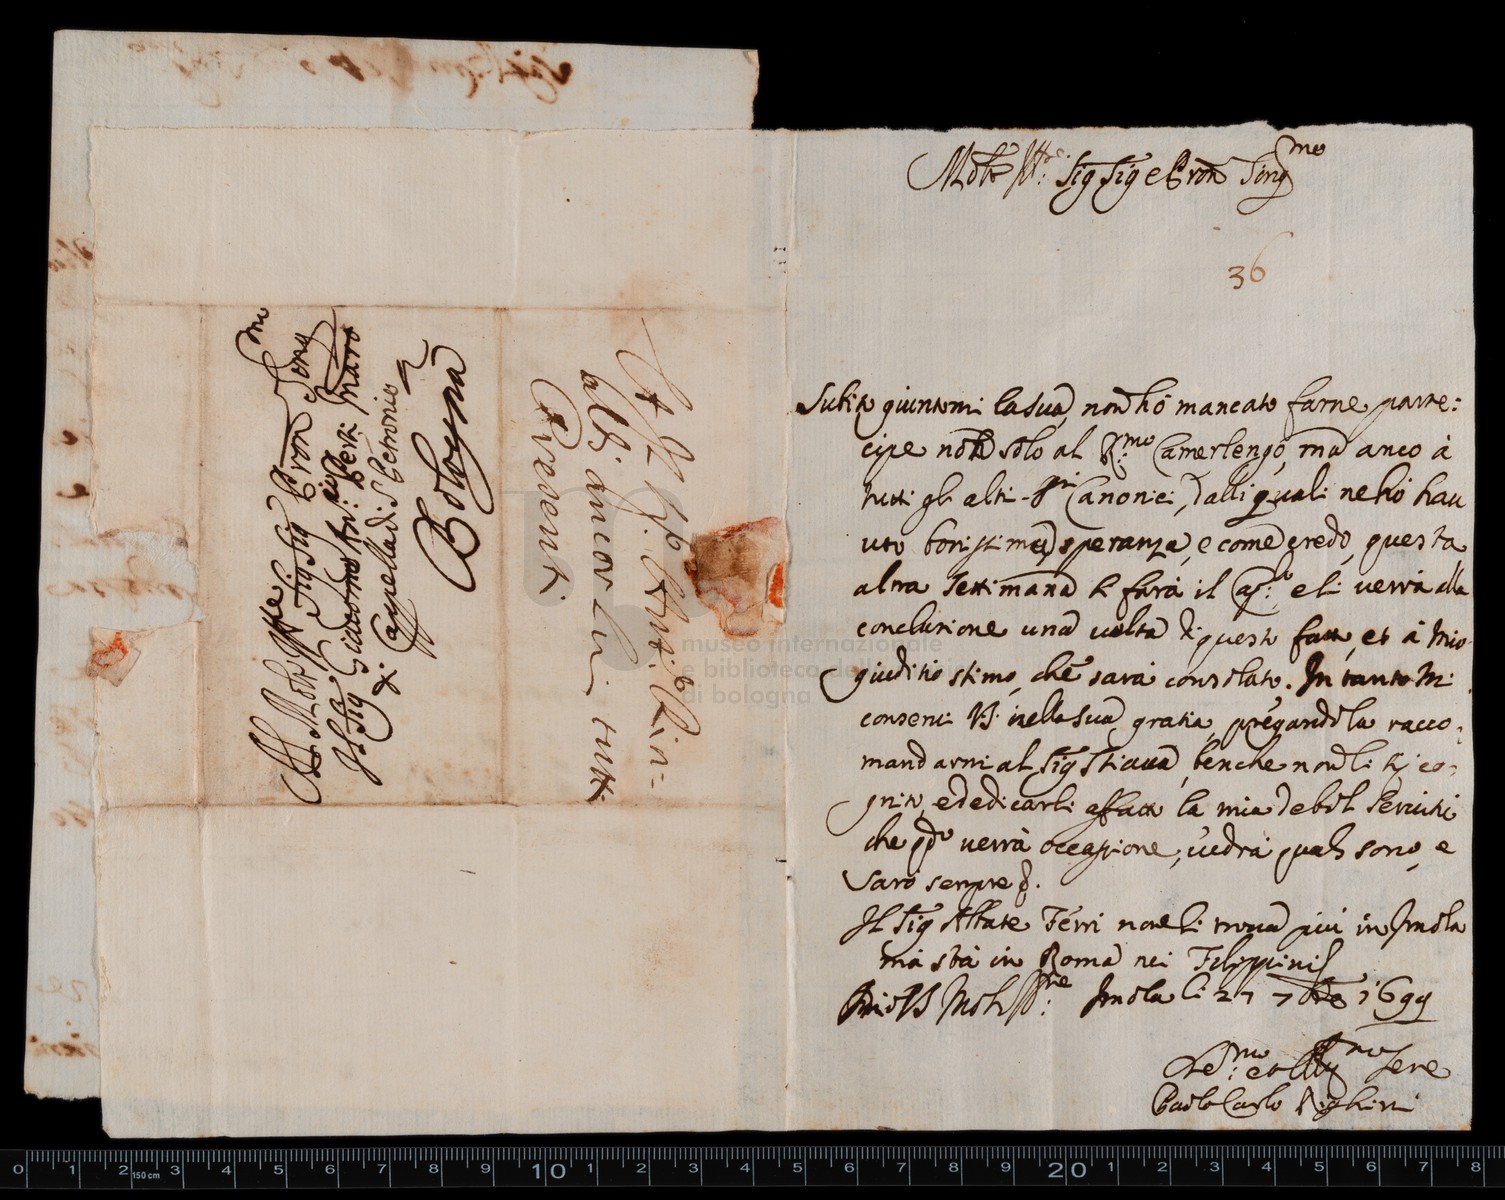 Molto Ill:re Sig Sig e Pron Sing.mo
36
Subito giuntomi la sua, non hò mancato farne parte:
cipe non solo al R:mo Camerlengo, ma anco à
tutti gli altri Canonici, dalli quali ne hò hau
uto bonissima speranza, e come credo, questa
altra settimana si farà il Cap:o e si verrà alla
conclusione una uolta di questo fatto, et à mio
giuditio stimo, che sarà consolato. In tanto mi
conserui VS. nella sua gratia, pregandola racco:
mandarmi al Sig Stiaua, benche non li sij co:
gnito, e dedicarli affatto la mia debol seruitù
che qdo uerrà occassione, uedrà quale sono, e
sarò sempre
Il Sig Abbate Ferri non si troua più in Imola
ma stà in Roma nei Filippini
Di VS Molto Ill:re Imola li 27 7bre 1699
De:mo et Obbligmo Sere
Paolo Carlo Righini
Al Molto Ill:re Sig Sig Pron Sing.mo
Il Sig Giacomo Ant: Perti Maro
di Cappella di S Petronio
Bologna
museo internazionale
e biblioteca della musica
di bologna
0 1 2 3 4 5 6 7 8 9 10 1 2 3 4 5 6 7 8 9 20 1 2 3 4 5 6 7 8
150 cm